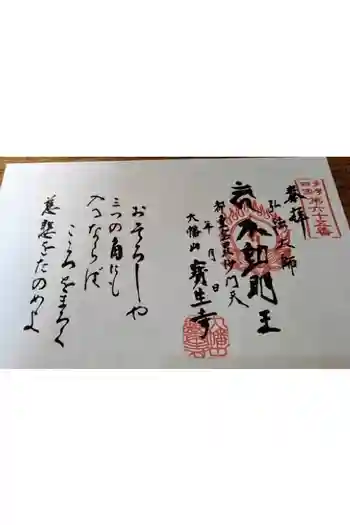 奉拝
弘法大師
不動明王
毘沙門天
年 月 日
大幡山 寳生寺
おそろしや
三つの角にも
入るならば
こころをまろく
慈悲をたのめよ